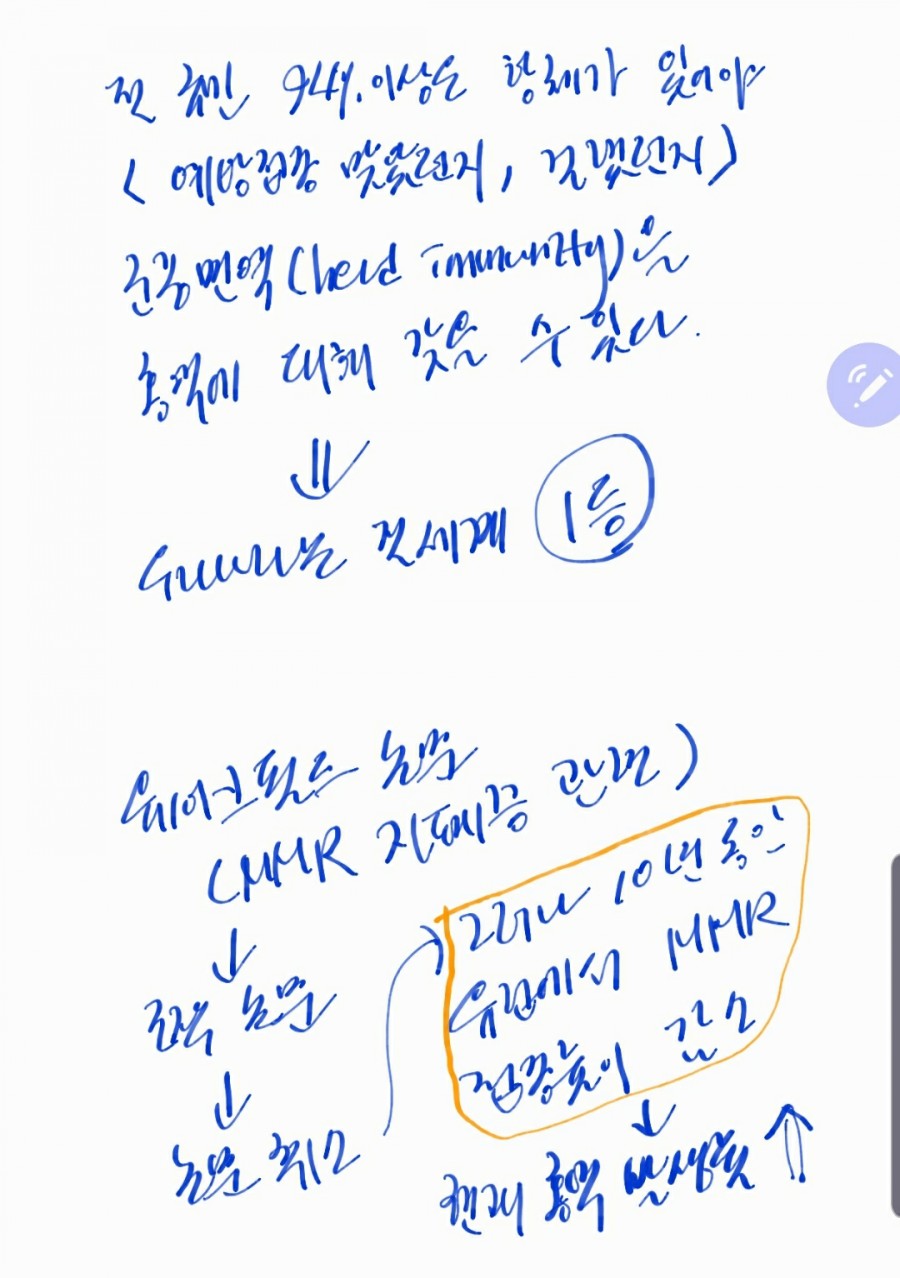 전 국민 94%.이상은 항체가 있어야
< 예방접종 맞았던지, 걸렸던지 >
군중면역(herd Immunity)을
홍역에 대해 갖을 수 있다.
⇓
는 전세계 1등
웨이크필드 논문
(MMR 자폐증 관련)
↓
조작 논문
↓
논문 취소
그러나 10년 동안
유럽에서 MMR
접종율이 감소
↓
현재 홍역 발생율 ↑